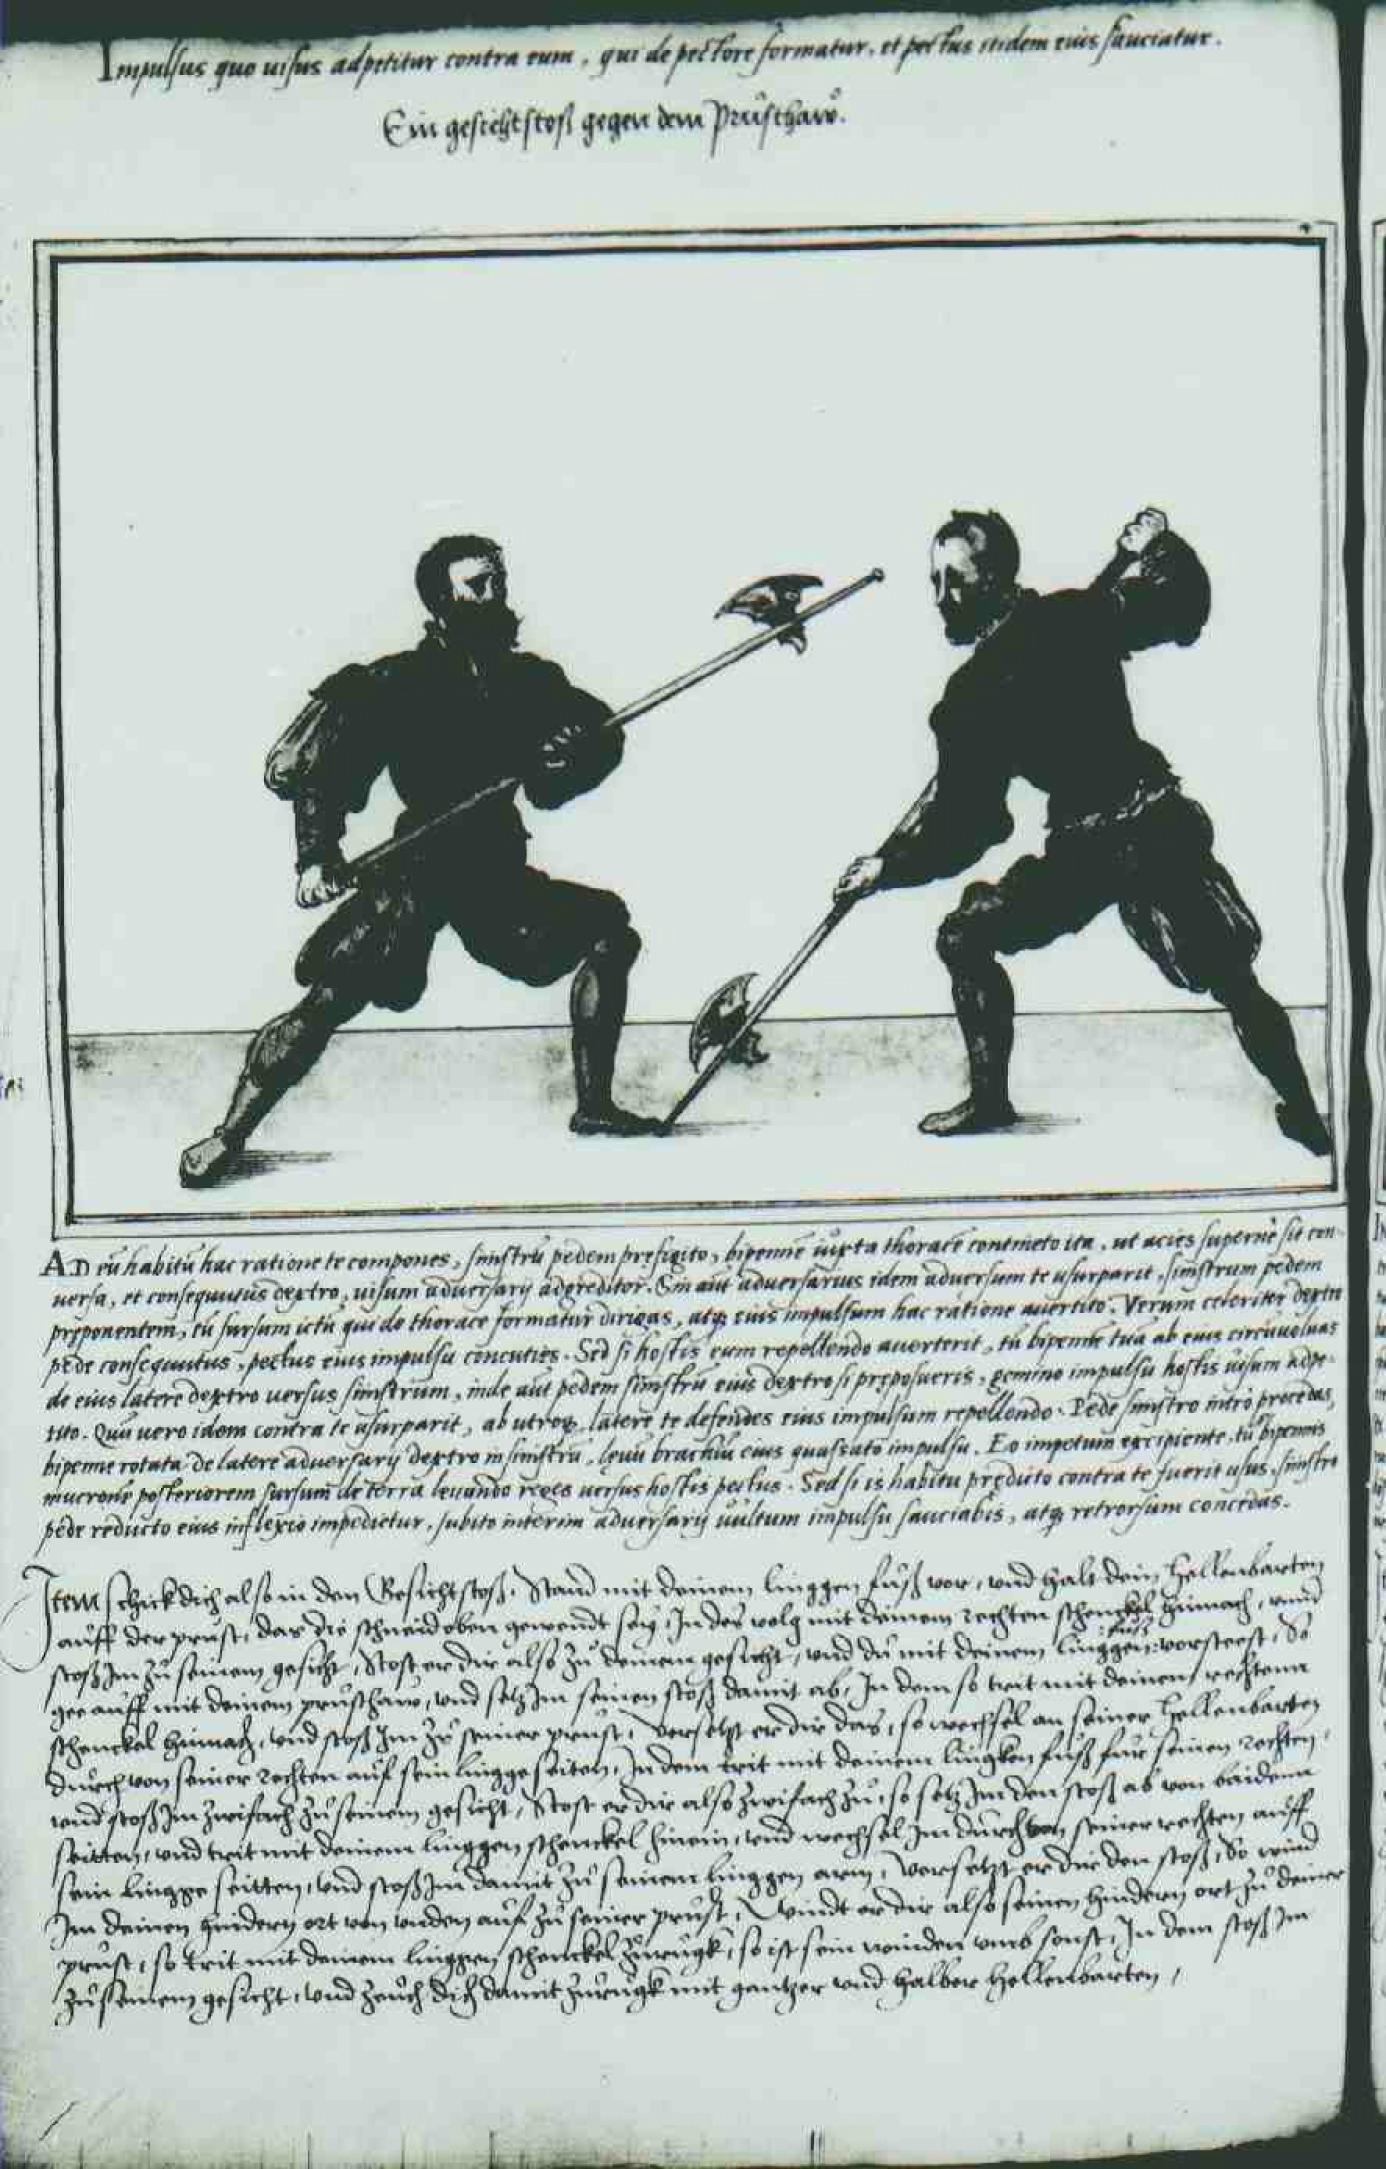 Impulsus quo uisus adpetitur contra eum, qui de pectore formatur, et pectus itidem eius sauciatur.
Ein gesichtstoß gegen dem Průsthaw.
AD eũ habitũ hac ratione te compones, sinistrũ pedem prefigito, bipennẽ iuxta thoracẽ contineto ita, ut acies supernè sit con-
uersa, et consequutus dextro, uisum aduersarij adgreditor. Sin aũt aduersarius idem aduersum te usurparit, sinistrum pedem
pręponentem, tũ sursum ictũ qui de thorace formatur dirigas, atq; eius impulsum hac ratione auertito. Verum celeriter dextro
pede consequutus, pectus eius impulsu concuties. Sed si hostis eum repellendo auerterit, tũ bipennẽ tuã ab eius circũuoluas
de eius latere dextro uersus sinistrum, inde aũt pedem sinistrũ eius dextro si pręposueris, gemino impulsu hostis uisum adpe-
tito. Quũ uero idem contra te usurparit, ab utroq; latere te defendes eius impulsum repellendo. Pede sinistro intrò procedas,
bipenne rotata de latere aduersarij dextro in sinistrũ, lęuũ brachiũ eius quassato impulsu. Eo impetum excipiente, tũ bipennis
mucronẽ posteriorem sursum de terra leuando reges uersus hostis pectus. Sed si is habitu prędicto contra te fuerit usus, sinistro
pede reducto eius inflexio impedietur, subito interim aduersarij uultum impulsu sauciabis, atq; retrorsum concedas.
Item schick dich also in den Gesichtstoß. Stand mit deinem linggen fůß vor, vnd halt dein hellenbarten
auff der prust, das die schneid oben gewendt sey, In des volg mit deinem rechten schenckel hinnach, vnnd
stoß Im zů seinem gesicht, Stost er dir also zů deinem gesicht, vnd du mit deinem linggen :fůß: vorsteest, So
gee auff mit deinem prusthaw, vnd setz Im seinen stoß damit ab, In dem so trit mit deinem rechtenn
schenckel hinnach, vnd stoß Im zů seiner prust, Versetzt er dir das, so wechsel an seiner hellenbarten
durch von seiner rechten auf sein lingge seiten, In dem trit mit deinem lingken fůß für seinen rechten,
vnd stoß Im zwifach zů seinem gesicht, Stost er dir also zwifach zů, so setz Im den stoß ab von baidenn
seitten, vnd trit mit deinem linggen schenckel hinein, vnd wechsel Im durch von seiner rechten auff
sein lingge seitten, vnd stoß Im damit zů seinem linggen arm, Versetzt er dir den stoß, So wind
Im deinen hindern ort von vnden auf zů seiner prust, Windt er dir also seinen hindern ort zů deiner
prust, so trit mit deinem linggen schenckel zůrugk, so ist sein winden vmb sonst, In dem stoß Im
zů seinem gesicht, vnd zeuch dich damit zůrugk mit gantzer vnd halber hellenbarten,